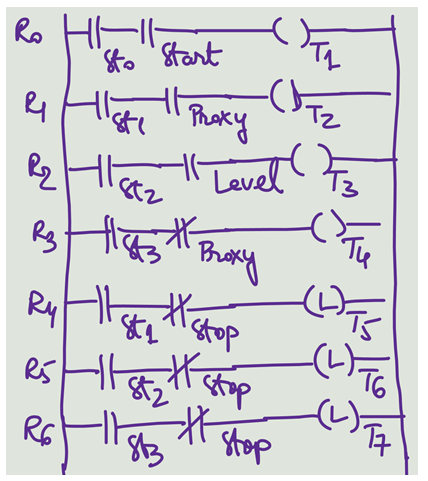 R0 St0 Start ( ) T1
R1 St1 Proxy ( ) T2
R2 St2 Level ( ) T3
R3 St3 Proxy ( ) T4
R4 St1 Stop (L) T5
R5 St2 Stop (L) T6
R6 St3 Stop (L) T7